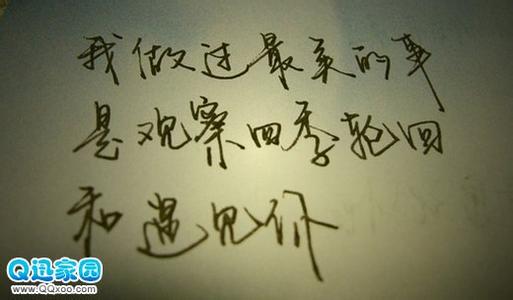 我做过最美的事
是观察四季轮回
和遇见你
Q迅家园
www.QQxoo.com